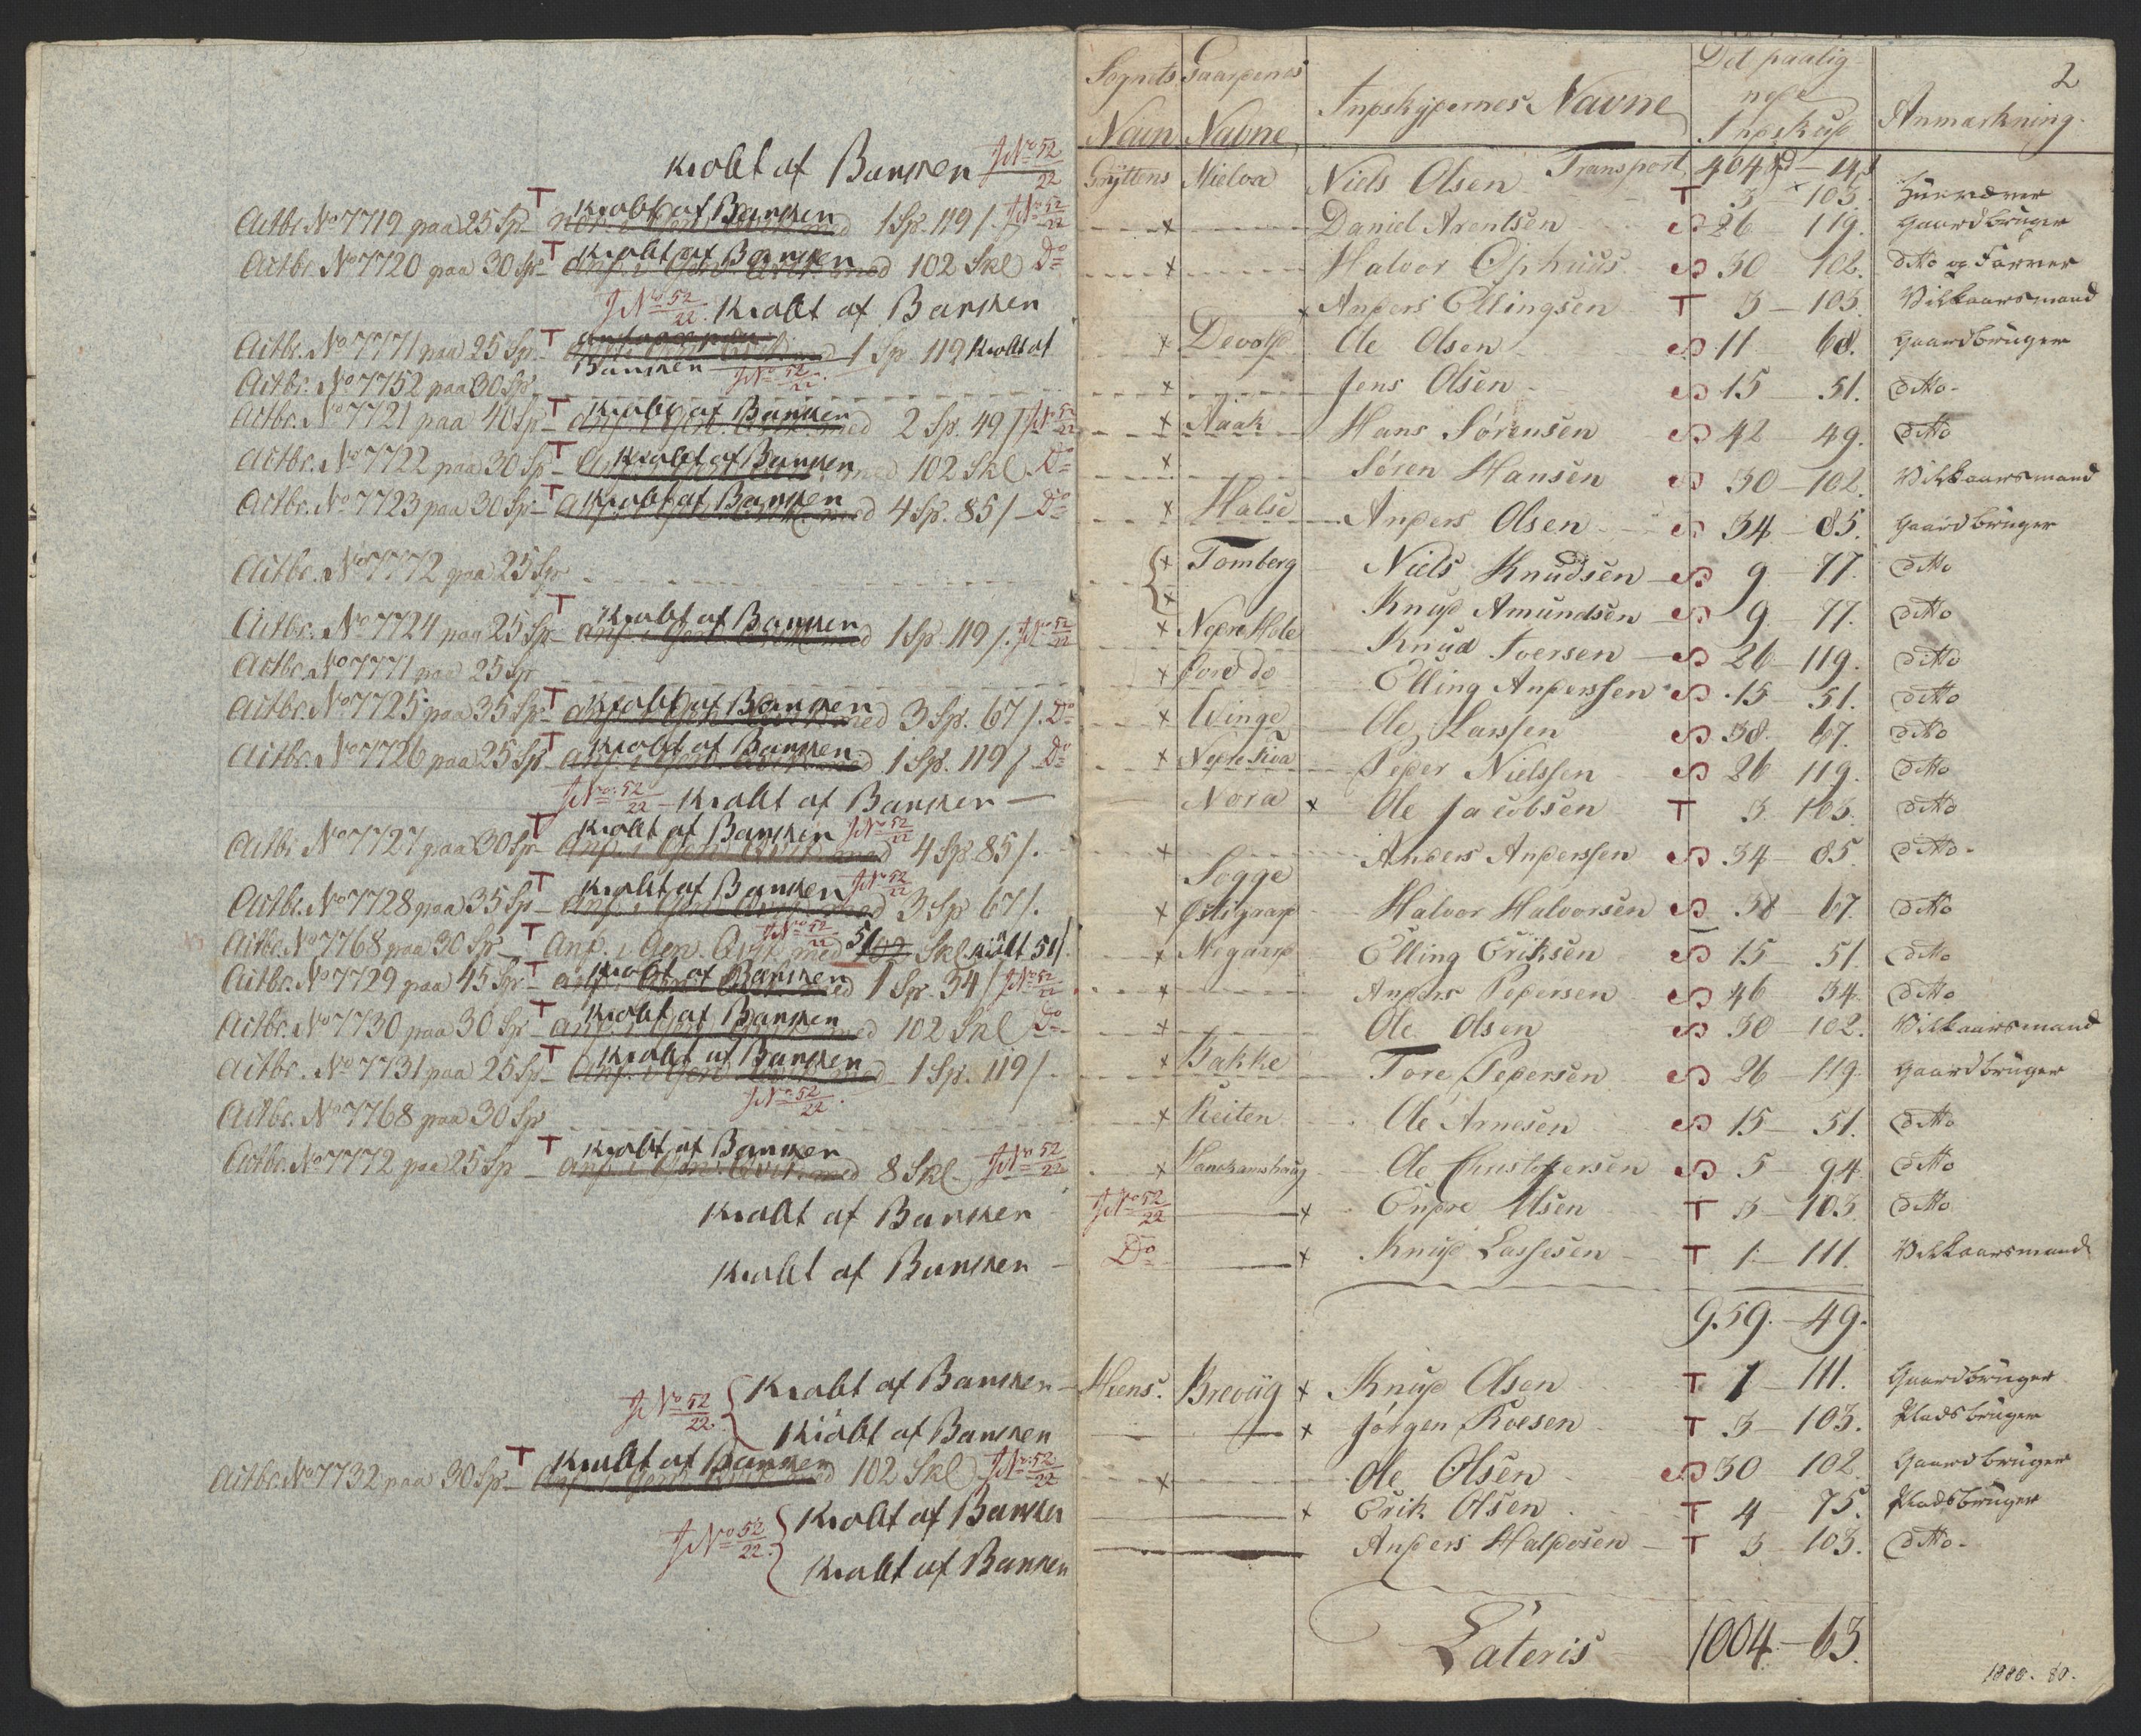 Kiøbt af Banken JNo 52/22
Actbr. No 7719 paa 25 Sp T Kiøbt af Banken med 1 Sp. 119 /. JNo 52/22
Actbr. No 7720 paa 30 Sp T Kiøbt af Banken med 102 Skl Do
JNo 52/22. Kiøbt af Banken
Actbr. No 7171 paa 25 Sp. T med 1 Sp. 119 Kiøbt af
Banken JNo 52/22.
Actbr. No 7752 paa 30 Sp.
Actbr. No 7721 paa 40 Sp T Kiøbt af Banken med 2 Sp. 49 / JNo 52/22
Actbr. No 7722 paa 30 Sp T Kiøbt af Banken med 102 Skl Do
Actbr. No 7723 paa 30 Sp T Kiøbt af Banken med 4 Sp. 85 / Do
Actbr. No 7772 paa 25 Sp
Actbr. No 7724 paa 25 Sp T Kiøbt af Banken med 1 Sp. 119 /. JNo 52/22
Actbr. No 7771 paa 25 Sp
Actbr. No 7725 paa 35 Sp T Kiøbt af Banken med 3 Sp. 67 /. Do
Actbr. No 7726 paa 25 Sp T Kiøbt af Banken med 1 Sp. 119 / Do
JNo 52/22 Kiøbt af Banken
Actbr. No 7727 paa 30 Sp T Kiøbt af Banken JNo 52/22 med 4 Sp. 85 /.
Actbr. No 7728 paa 35 Sp T Kiøbt af Banken JNo 52/22 med 3 Sp 67 /.
Actbr. No 7768 paa 30 Sp T Anf. i Gen. Qvit. med JNo 52/22 51 102 Skl. kiøbt 51 /.
Actbr. No 7729 paa 45 Sp T Kiøbt af Banken med 1 Sp. 34 / JNo 52/22
Actbr. No 7730 paa 30 Sp T Kiøbt af Banken med 102 Skl Do
Actbr. No 7731 paa 25 Sp T Kiøbt af Banken med 1 Sp. 119 /
JNo 52/22.
Actbr. No 7768 paa 30 Sp
Actbr. No 7772 paa 25 Sp T Kiøbt af Banken med 8 Skl JNo 52/22
Kiøbt af Banken
Kiøbt af Banken
JNo 52/22. Kiøbt af Banken
Kiøbt af Banken
Actbr. No 7732 paa 30 Sp T Kiøbt af Banken med 102 Skl JNo 52/22
JNo 52/22. Kiøbt af Banken
Kiøbt af Banken
2
Sognets Navn Gaardenes Navne Indskydernes Navne Det paalignede Indskud Anmærkning.
Transport 404 - 14
Gryttens Mielva Niels Olsen T 3 - 103. Huusværer
x Daniel Arentsen S 26 - 119. Gaardbruger
x Halvor Ophuus S 30 - 102. ditto og Farver
x Anders Ellingsen T 3 - 103. Vilkaarsmand
x Devold Ole Olsen S 11 68. Gaardbruger
x Jens Olsen S 15 51. ditto
x Naak Hans Sørensen S 42 - 49. ditto
x Søren Hansen S 30 - 102. Vilkaarsmand
x Halse Anders Olsen S 34 - 85. Gaardbruger
x Tomberg Niels Knudsen S 9 - 77. ditto
x Knud Amundsen S 9 - 77. ditto
x Nedre Hole Knud Iversen S 26 - 119. ditto
x øvre do Elling Anderssen S 15 51. ditto
x Winge Ole Larssen S 38. 67. ditto
x Nedre Kiva Peder Nielssen S 26 119. ditto
Nora x Ole Jacobsen T 3. 103. ditto
x Anders Anderssen S 34 - 85. ditto
Sogge
x Østigrand Halvor Halvorsen S 38 - 67. ditto
x Negard Elling Eriksen S 15 - 51. ditto
x Anders Pedersen S 46 34. ditto
x Ole Olsen S 30 - 102. Vilkaarsmand
x Bakke Tore Pedersen S 26 - 119. Gaardbruger
x Reiten Ole Arnesen S 15 51. ditto
x Ole Christophersen S 5 - 94. ditto
JNo 52/22 x Endre Olsen T 3 - 103. ditto
Do x Knud Lassesen T 1 - 111. Vilkaarsmand
959. - 49.
Hiens. Brevüg x Knud Olsen T 1 - 111. Gaardbruger
x Jørgen Roesen T 3 - 103. Pladsbruger
x Ole Olsen S 30 102. Gaardbruger
x Erik Olsen T 4 - 75. Pladsbruger
Anders Haldosen T 3 - 103. ditto
Lateris 1004 - 63.
1880. 80.